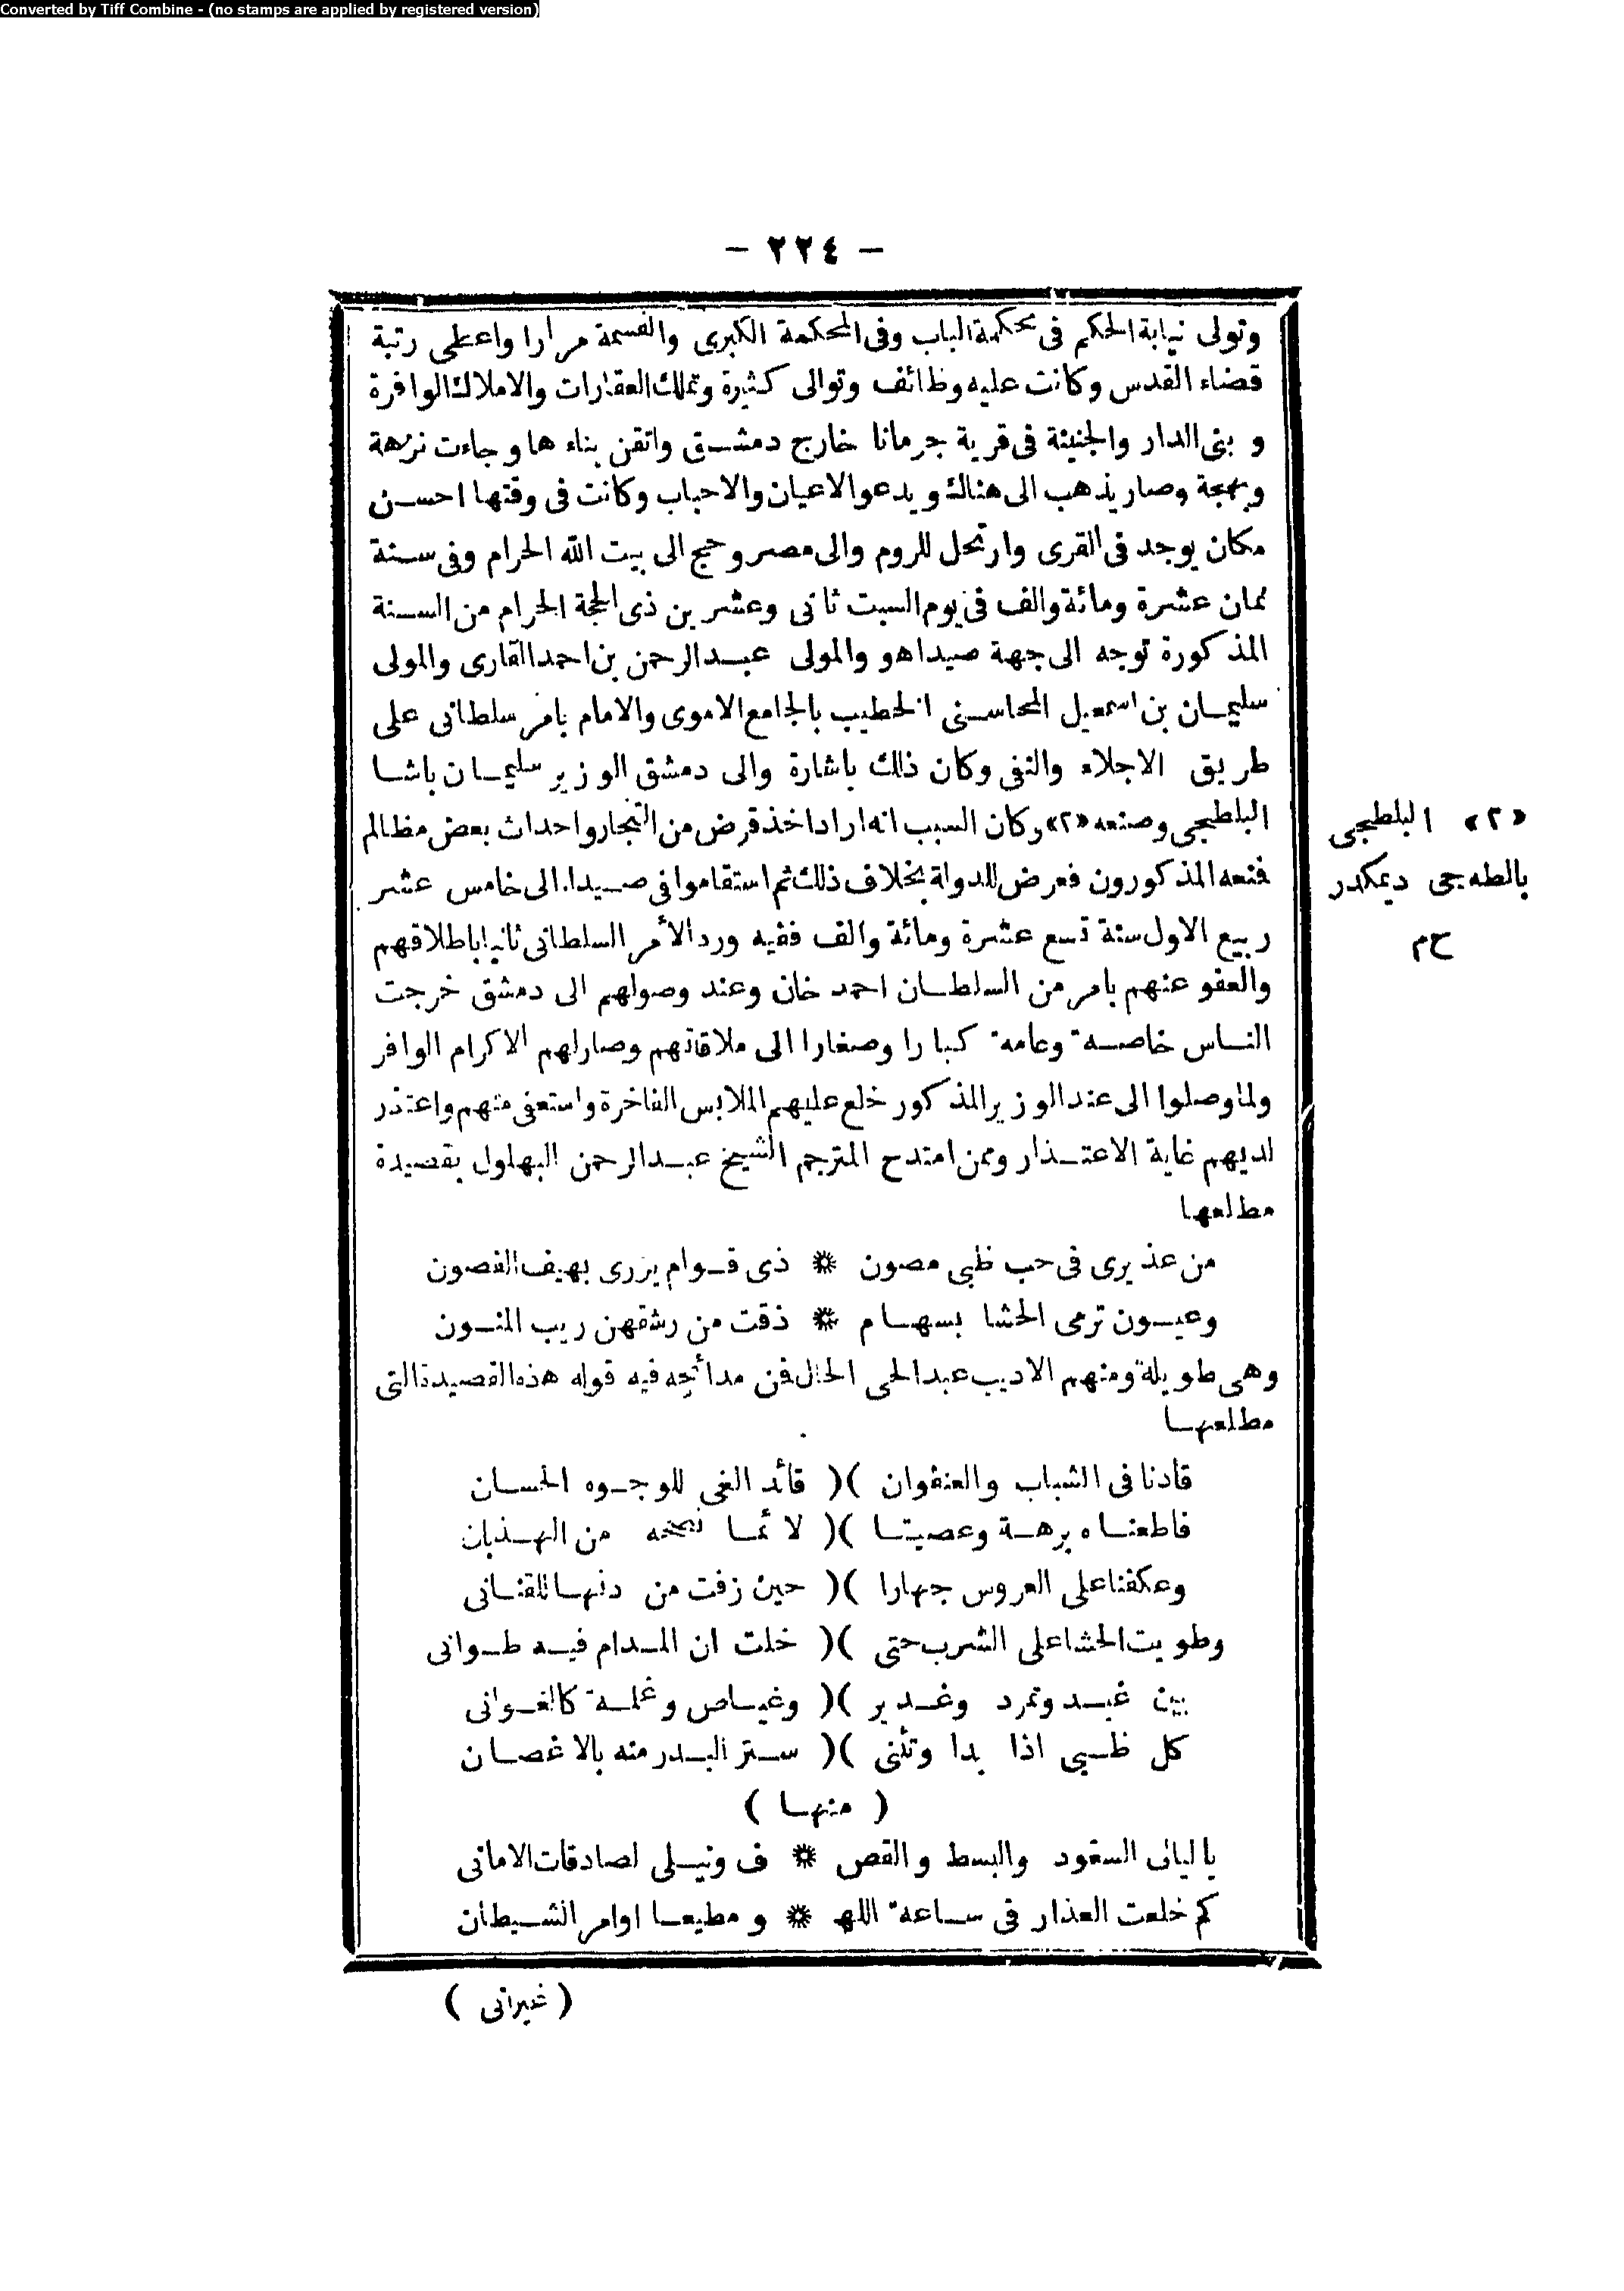 Converted by Tiff Combine - (no stamps are applied by registered version)
- ٢٢٤ -
وتولى نيابة الحكم فى محكمة الباب وفى المحكمة الكبرى والقسمة مرارا واعطى رتبة
قضاء القدس وكانت عليه وظائف وتوالى كثيرة وتملك العقارات والاملاك الوافرة
وبنى الدار والجنينة فى قرية جرمانا خارج دمشق واتقن بناءها وجاءت نزهة
وبهجة وصار يذهب الى هنالك ويدعو الاعيان والاحباب وكانت فى وقتها احسن
مكان يوجد فى القرى وارتحل للروم والى مصر وحج الى بيت الله الحرام وفى سنة
ثمان عشرة ومائة والف فى يوم السبت ثانى وعشرين ذى الحجة الحرام من السنة
المذكورة توجه الى جهة صيدا هو والمولى عبدالرحمن بن احمد القارى والمولى
سليمان بن اسمعيل المحاسنى الخطيب بالجامع الاموى والامام بامر سلطانى على
طريق الاجلاء والنفى وكان ذلك باشارة والى دمشق الوزير سليمان باشا
البلطجى وصنعه «٢» وكان السبب انه اراد اخذ قرض من التجار واحداث بعض مظالم
فنعه المذكورون فعرض للدولة بخلاف ذلك ثم استقاموا فى صيدا الى خامس عشر
ربيع الاول سنة تسع عشرة ومائة والف ففيه ورد الأمر السلطانى ثانيا باطلاقهم
والعفو عنهم بامر من السلطان احمد خان وعند وصولهم الى دمشق خرجت
الناس خاصة وعامة كبارا وصغارا الى ملاقاتهم وصار لهم الاكرام الوافر
ولما وصلوا الى عند الوزير المذكور خلع عليهم الملابس الفاخرة واستعفى منهم واعتذر
لديهم غاية الاعتذار وممن امتدح المترجم الشيخ عبدالرحمن البهلول بقصيدة
مطلعها
من عذيرى فى حب ظبى مصون * ذى قوام يزرى بهيف الغصون
وعيون ترمى الحشا بسهام * ذقت من رشقهن ريب المنون
وهى طويلة ومنهم الاديب عبدالحى الخال فن مدائحه فيه قوله هذه القصيدة التى
مطلعها
قادنا فى الشباب والعنفوان )( قائد الغى للوجوه الحسان
فاطعناه برهة وعصينا )( لائما نصحه من الهذيان
وعكفنا على العروس جهارا )( حين زفت من دنها للقنانى
وطويت الحشا على الشرب حتى )( خلت ان المدام فيه طوانى
بين غيد ومرد وغدير )( وغياض وغلمة كالغوانى
كل ظبى اذا بدا وتثنى )( ستر البدر منه بالاغصان
( منها )
يا ليالى السعود والبسط والقص * ف ونيلى لصادقات الامانى
كم خلعت العذار فى ساعة الله * و مطيعا اوامر الشيطان
( غيرانى )
«٢» البلطجى
بالطه جى ديمكدر
ح م